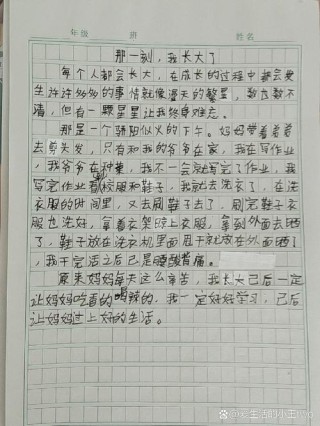 年级 班 姓名
那一刻，我长大了
每个人都会长大，在成长的过程中都会发
生许许多多的事情就像漫天的繁星，数也数不
清，但有一颗星星让我终身难忘。
那是一个骄阳似火的下午。妈妈带着爸爸
去剪头发，只有和我的爷爷在家，我在写作业，
我爷爷在种菜，我不一会就写完了作业，我
写完作业看校服和鞋子，我就去洗衣了，在洗
衣服的时间里，又去刷鞋子去了，刷完鞋子衣
服也洗好，拿着衣架晾上衣服，拿到外面去晒
了，鞋子放在洗衣机里面甩干就放在外面晒了
，我干完活之后已是腰酸背痛。
原来妈妈每天这么辛苦，我长大已后一定
让妈妈吃香的喝辣的，我一定好好学习，已后
让妈妈过上好的生活。